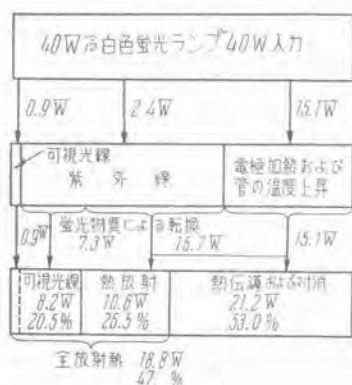 40W冷白色蛍光ランプ40W入力
0.9W
2.4W
15.1W
可視光線
紫外線
電極加熱および
管の温度上昇
0.9W
蛍光物質による転換
7.3W
16.7W
15.1W
可視光線
8.2W
20.5%
熱放射
10.6W
26.5%
熱伝導および対流
21.2W
53.0%
全放射熱 18.8W
47. %